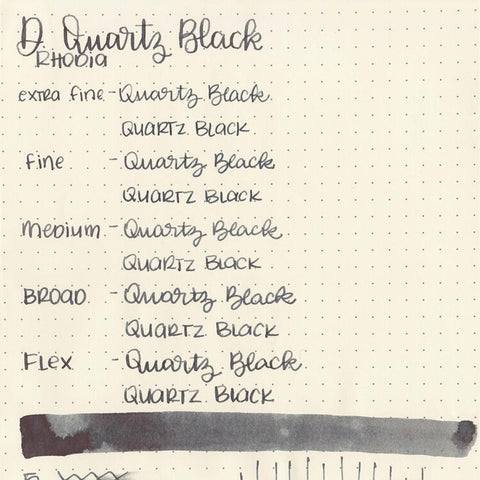 D. Quartz Black
RHODIA
extra fine - Quartz Black.
QUARTZ BLACK.
fine - Quartz Black
QUARTZ BLACK
medium - Quartz Black.
QUARTZ BLACK
BROAD - Quartz Black
QUARTZ BLACK
FLEX - Quartz Black.
QUARTZ BLACK
5